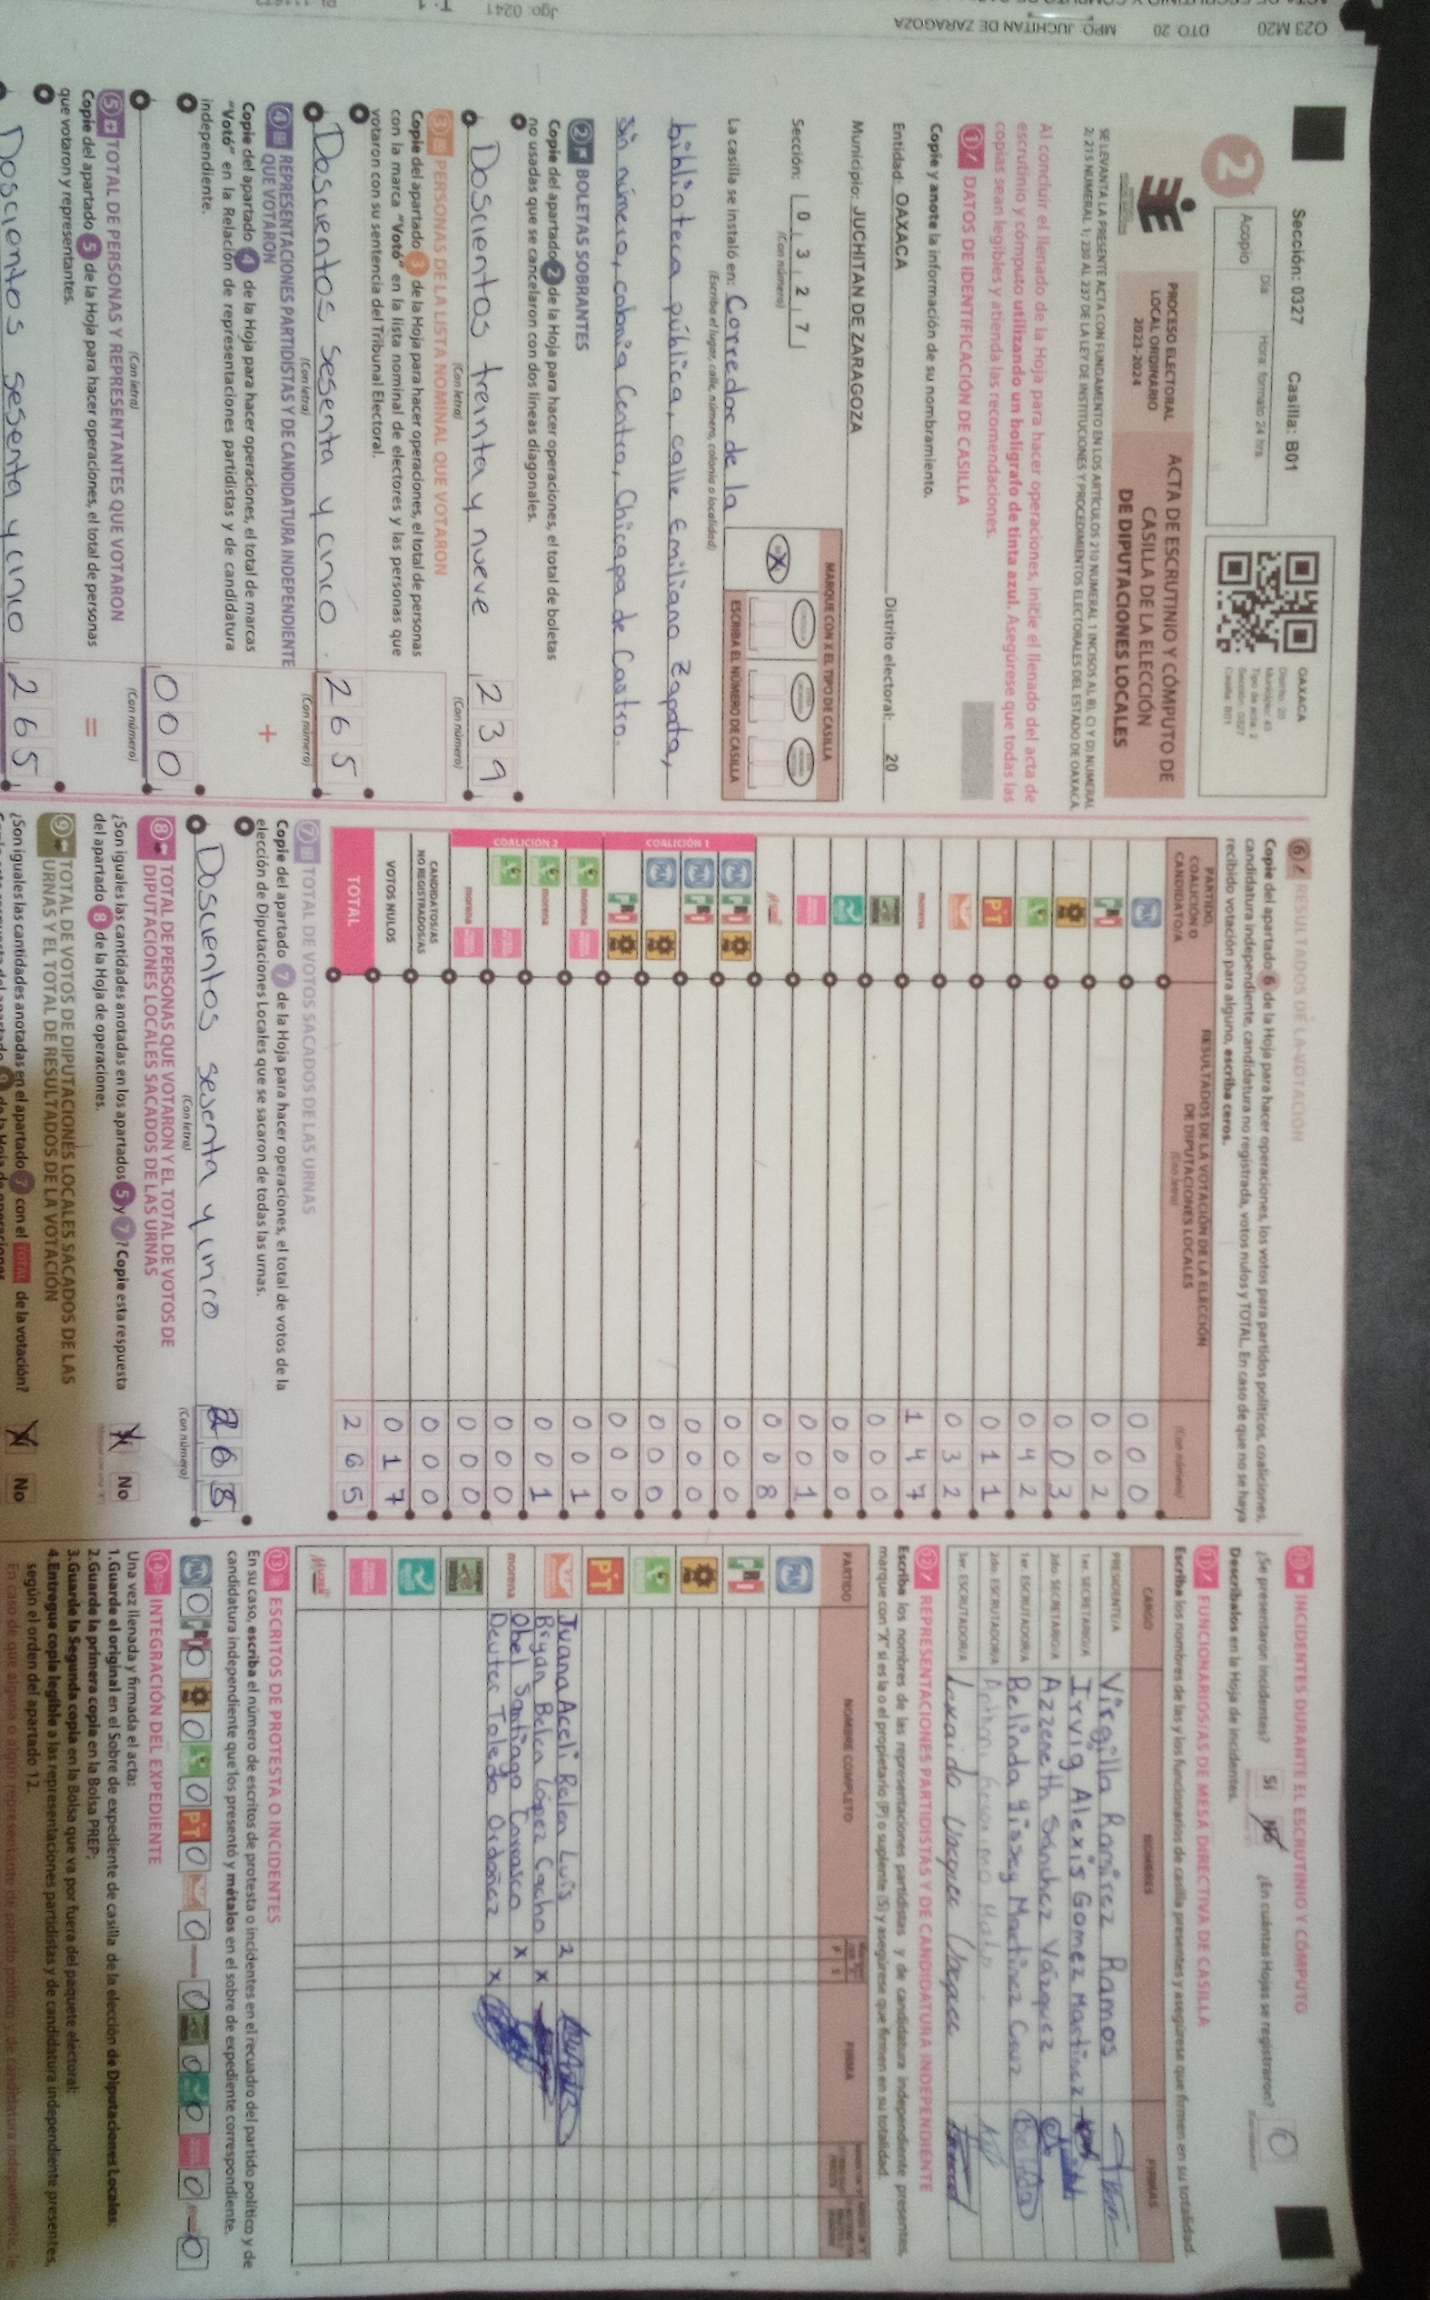 Sección: 0327 Casilla: B01
Día Hora: formato 24 hrs.
2
Acopio
OAXACA
Distrito: 20
Municipio: 43
Tipo de acta: 2
Sección: 0327
Casilla: B01
PROCESO ELECTORAL
LOCAL ORDINARIO
2023-2024
ACTA DE ESCRUTINIO Y CÓMPUTO DE
CASILLA DE LA ELECCIÓN
DE DIPUTACIONES LOCALES
SE LEVANTA LA PRESENTE ACTA CON FUNDAMENTO EN LOS ARTÍCULOS 210 NUMERAL 1 INCISOS A), B), C) Y D) NUMERAL
2; 215 NUMERAL 1; 230 AL 237 DE LA LEY DE INSTITUCIONES Y PROCEDIMIENTOS ELECTORALES DEL ESTADO DE OAXACA.
Al concluir el llenado de la Hoja para hacer operaciones, inicie el llenado del acta de
escrutinio y cómputo utilizando un bolígrafo de tinta azul. Asegúrese que todas las
copias sean legibles y atienda las recomendaciones.
1 DATOS DE IDENTIFICACIÓN DE CASILLA
Copie y anote la información de su nombramiento.
Entidad: OAXACA Distrito electoral: 20
Municipio: JUCHITAN DE ZARAGOZA
Sección: 0 3 2 7
(Con número)
MARQUE CON X EL TIPO DE CASILLA
X
ESCRIBA EL NÚMERO DE CASILLA
La casilla se instaló en: Corredor de la
(Escriba el lugar, calle, número, colonia o localidad)
biblioteca pública, calle Emiliano Zapata,
sin número, colonia Centro, Chicapa de Castro.
2 BOLETAS SOBRANTES
Copie del apartado 2 de la Hoja para hacer operaciones, el total de boletas
no usadas que se cancelaron con dos líneas diagonales.
Doscientos treinta y nueve 2 3 9
(Con letra) (Con número)
3 PERSONAS DE LA LISTA NOMINAL QUE VOTARON
Copie del apartado 3 de la Hoja para hacer operaciones, el total de personas
con la marca "Votó" en la lista nominal de electores y las personas que
votaron con su sentencia del Tribunal Electoral.
Doscientos sesenta y cinco. 2 6 5
(Con letra) (Con número)
4 REPRESENTACIONES PARTIDISTAS Y DE CANDIDATURA INDEPENDIENTE
QUE VOTARON
+
Copie del apartado 4 de la Hoja para hacer operaciones, el total de marcas
"Votó" en la Relación de representaciones partidistas y de candidatura
independiente.
0 0 0
(Con letra) (Con número)
5 TOTAL DE PERSONAS Y REPRESENTANTES QUE VOTARON
=
Copie del apartado 5 de la Hoja para hacer operaciones, el total de personas
que votaron y representantes.
Doscientos sesenta y cinco 2 6 5
6 RESULTADOS DE LA VOTACIÓN
Copie del apartado 6 de la Hoja para hacer operaciones, los votos para partidos políticos, coaliciones,
candidatura independiente, candidatura no registrada, votos nulos y TOTAL. En caso de que no se haya
recibido votación para alguno, escriba ceros.
PARTIDO,
COALICIÓN O
CANDIDATO/A
RESULTADOS DE LA VOTACIÓN DE LA ELECCIÓN
DE DIPUTACIONES LOCALES
(Con letra) (Con número)
PAN 0 0 0
PRI 0 0 2
PRD 0 0 3
0 4 2
PT 0 1 1
0 3 2
morena 1 4 7
0 0 0
0 0 0
0 0 1
0 0 8
COALICIÓN 1
PAN PRI PRD 0 0 0
PAN PRI 0 0 0
PAN PRD 0 0 0
PRI PRD 0 0 0
COALICIÓN 2
morena 0 0 1
morena 0 0 1
0 0 0
morena 0 0 0
CANDIDATOS/AS
NO REGISTRADOS/AS 0 0 0
VOTOS NULOS 0 1 7
TOTAL 2 6 5
7 TOTAL DE VOTOS SACADOS DE LAS URNAS
Copie del apartado 7 de la Hoja para hacer operaciones, el total de votos de la
elección de Diputaciones Locales que se sacaron de todas las urnas.
Doscientos sesenta y cinco
(Con letra) (Con número)
8 TOTAL DE PERSONAS QUE VOTARON Y EL TOTAL DE VOTOS DE
DIPUTACIONES LOCALES SACADOS DE LAS URNAS
¿Son iguales las cantidades anotadas en los apartados 5 y 7? Copie esta respuesta
del apartado 8 de la Hoja de operaciones.
No
9 TOTAL DE VOTOS DE DIPUTACIONES LOCALES SACADOS DE LAS
URNAS Y EL TOTAL DE RESULTADOS DE LA VOTACIÓN
¿Son iguales las cantidades anotadas en el apartado 7 con el TOTAL de la votación?
No
INCIDENTES DURANTE EL ESCRUTINIO Y CÓMPUTO
¿Se presentaron incidentes? Sí No ¿En cuántas Hojas se registraron? 0
Descríbalos en la Hoja de incidentes.
11 FUNCIONARIOS/AS DE MESA DIRECTIVA DE CASILLA
Escriba los nombres de las y los funcionarios de casilla presentes y asegúrese que firmen en su totalidad.
CARGO NOMBRES FIRMAS
PRESIDENTE/A Virgilla Ramírez Ramos
1er. SECRETARIO/A Irvig Alexis Gomez Martinez
2do. SECRETARIO/A Azzeneth Sánchez Vázquez
1er. ESCRUTADOR/A Belinda Yissey Martinez Cruz
2do. ESCRUTADOR/A
3er. ESCRUTADOR/A
12 REPRESENTACIONES PARTIDISTAS Y DE CANDIDATURA INDEPENDIENTE
Escriba los nombres de las representaciones partidistas y de candidatura independiente presentes,
marque con "X" si es la o el propietario (P) o suplente (S) y asegúrese que firmen en su totalidad.
PARTIDO NOMBRE COMPLETO P S FIRMA
PAN
PRI
PRD
PT
Juana Aceli Belen Luis 2
Bryan Belen López Cacho X
morena Obel Santiago Carrasco X
Deuter Toledo Ordoñez X
13 ESCRITOS DE PROTESTA O INCIDENTES
En su caso, escriba el número de escritos de protesta o incidentes en el recuadro del partido político y de
candidatura independiente que los presentó y métalos en el sobre de expediente correspondiente.
PAN 0 PRI 0 PRD 0 0 PT 0 0 morena 0 0 0 0 0
14 INTEGRACIÓN DEL EXPEDIENTE
Una vez llenada y firmada el acta:
1.Guarde el original en el Sobre de expediente de casilla de la elección de Diputaciones Locales;
2.Guarde la primera copia en la Bolsa PREP;
3.Guarde la Segunda copia en la Bolsa que va por fuera del paquete electoral;
4.Entregue copia legible a las representaciones partidistas y de candidatura independiente presentes,
según el orden del apartado 12.
O23 M20 DTO. 20 MPO. JUCHITAN DE ZARAGOZA
Jgo: 0241 T: 1